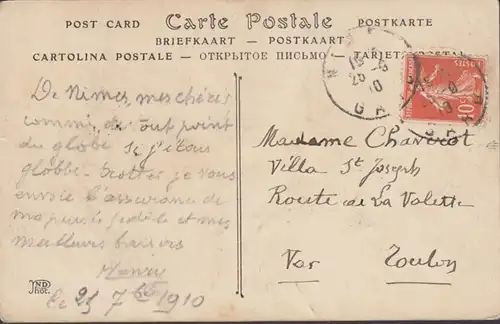 POST CARD Carte Postale POSTKARTE
BRIEFKAART - POSTKAART
CARTOLINA POSTALE - ОТКРЫТОЕ ПИСЬМО - TARJETA POSTAL
De Nimes, mes chères
comme de tout point
du globe si j'étais
globbe-trotter je vous
envoie l'assurance de
ma pensée fidèle et mes
meilleurs baisers
Henry
le 25 7bre 1910
Madame Chavirot
Villa St Joseph
Route de La Valette
Var Toulon
ND
Phot.
10
GARD
POSTES
10